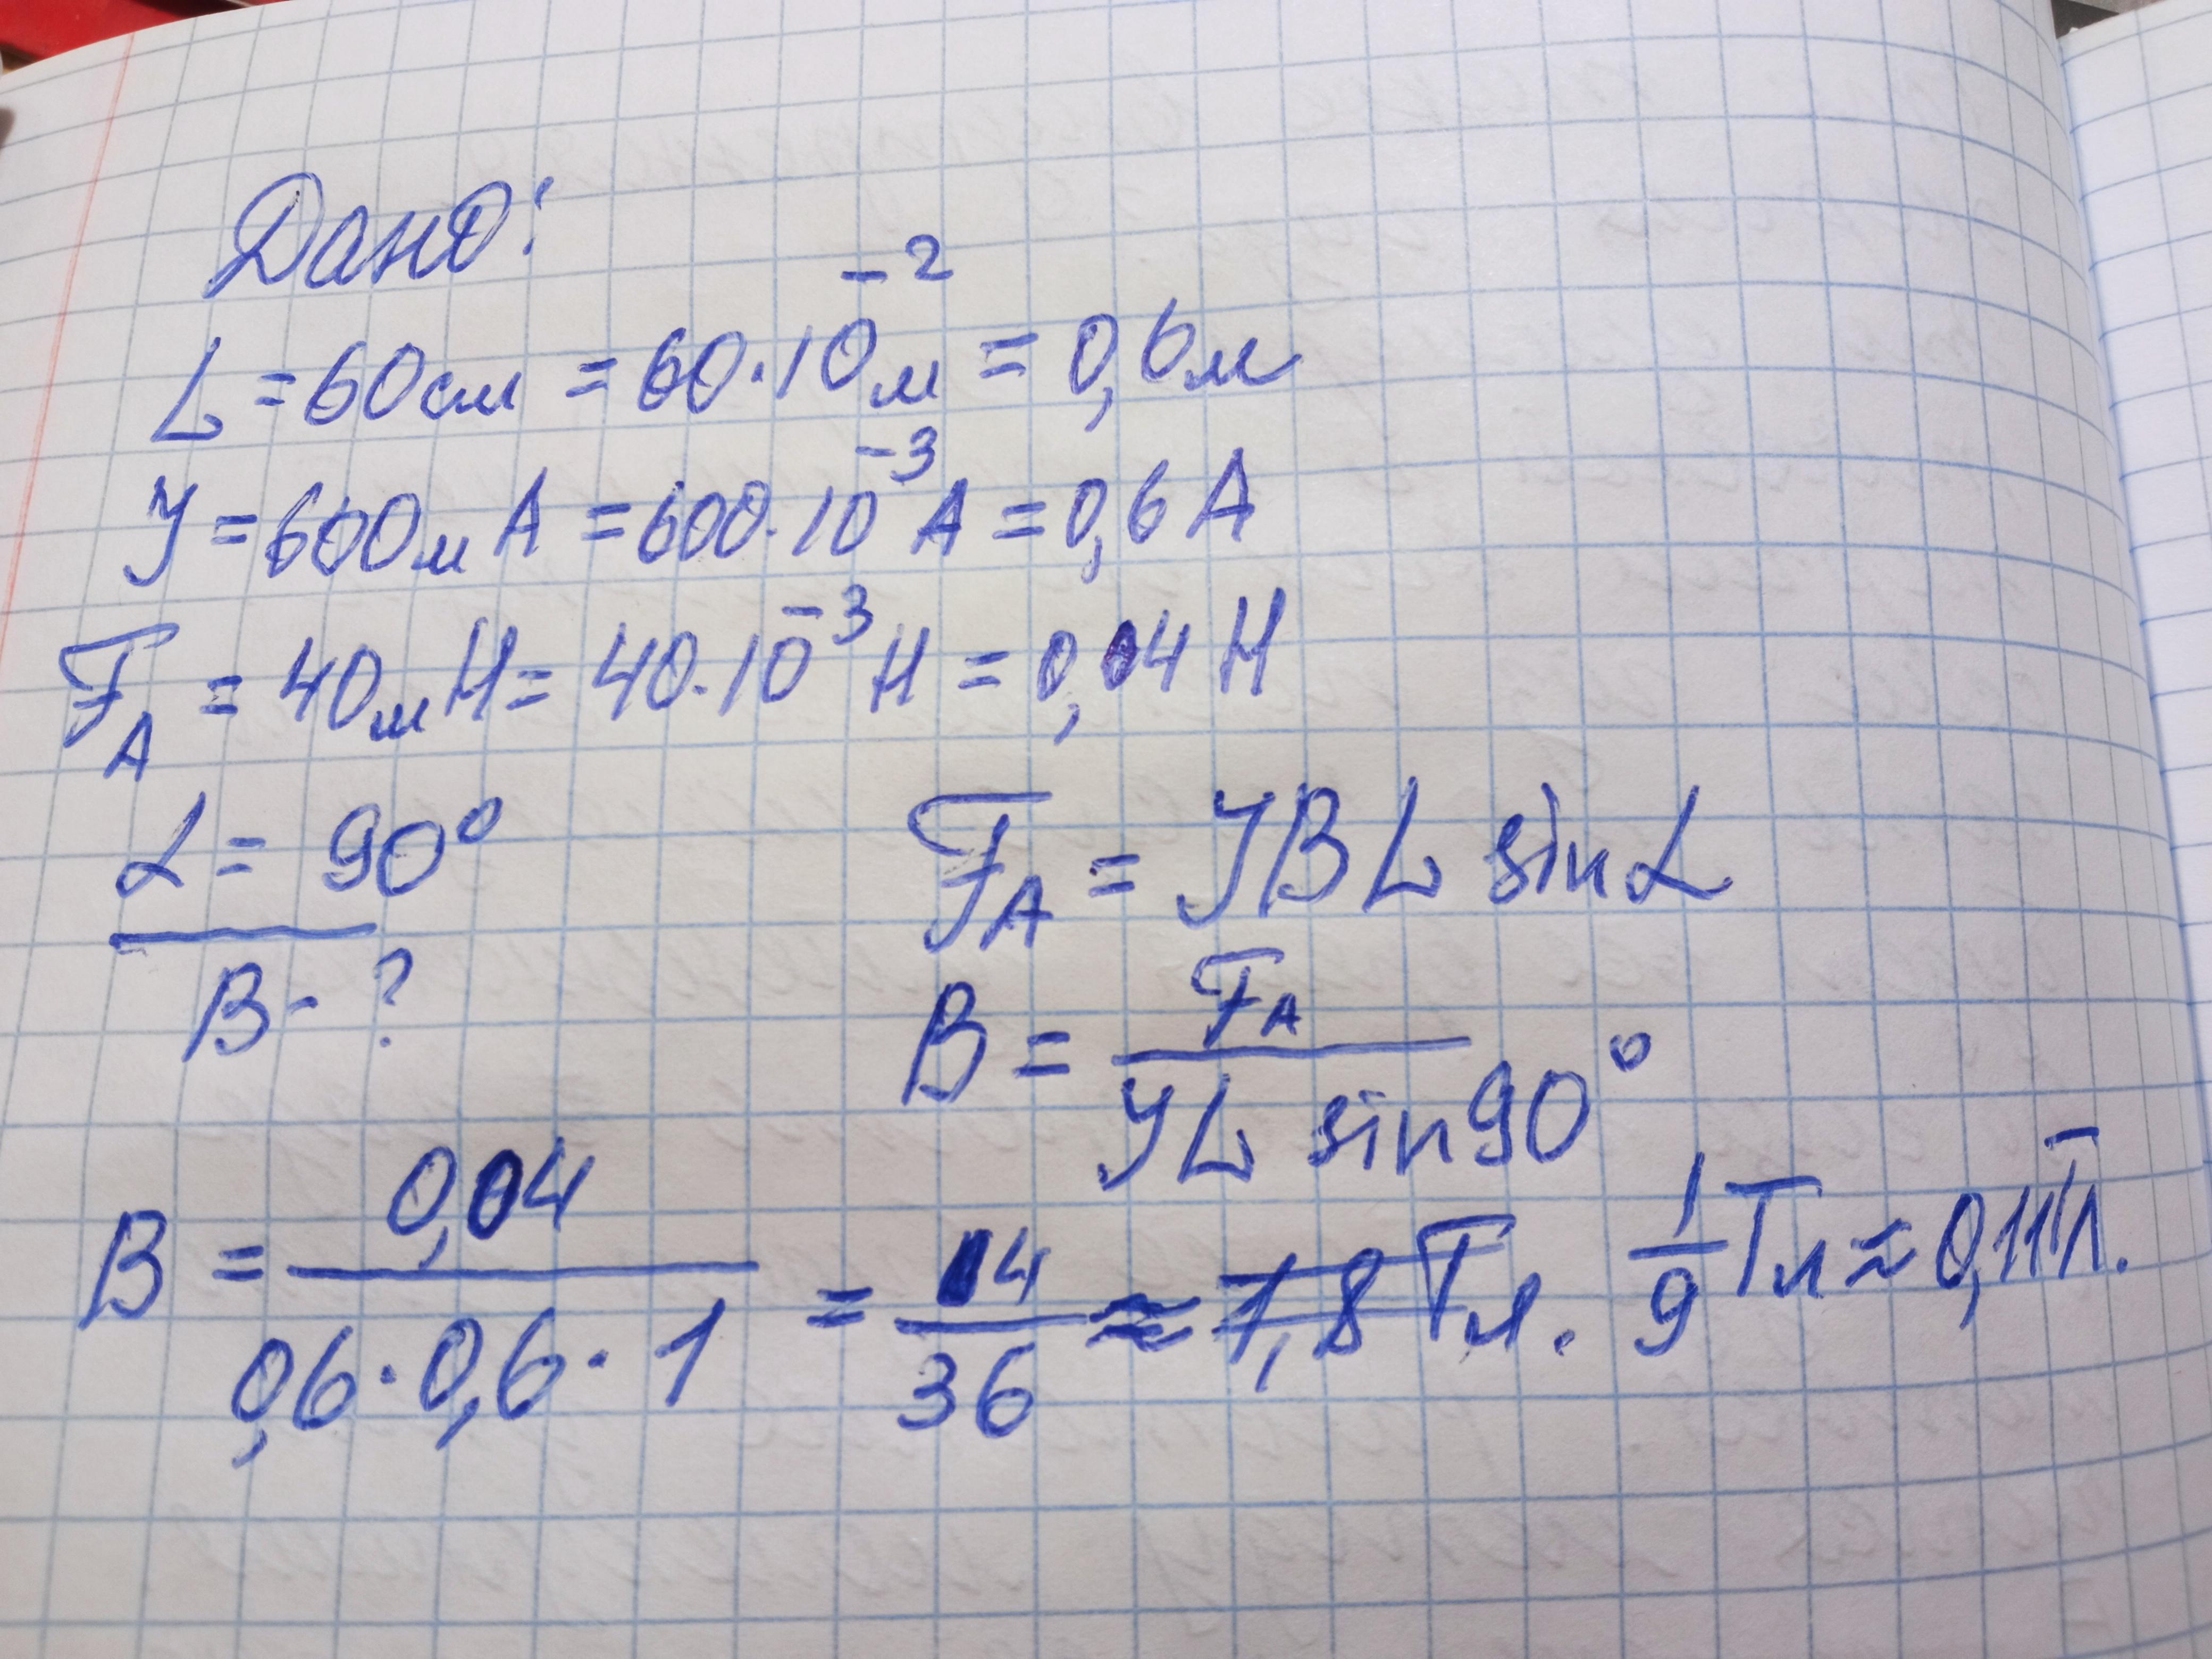 Дано:
L = 60см = 60·10⁻²м = 0,6м
J = 600мА = 600·10⁻³А = 0,6А
F_A = 40мН = 40·10⁻³Н = 0,04Н
α = 90°
B - ?
F_A = JBL sinα
B = F_A / JL sin90°
B = 0,04 / 0,6·0,6·1 = 4/36 ≈ 1,8 Тл. 1/9 Тл ≈ 0,11Тл.